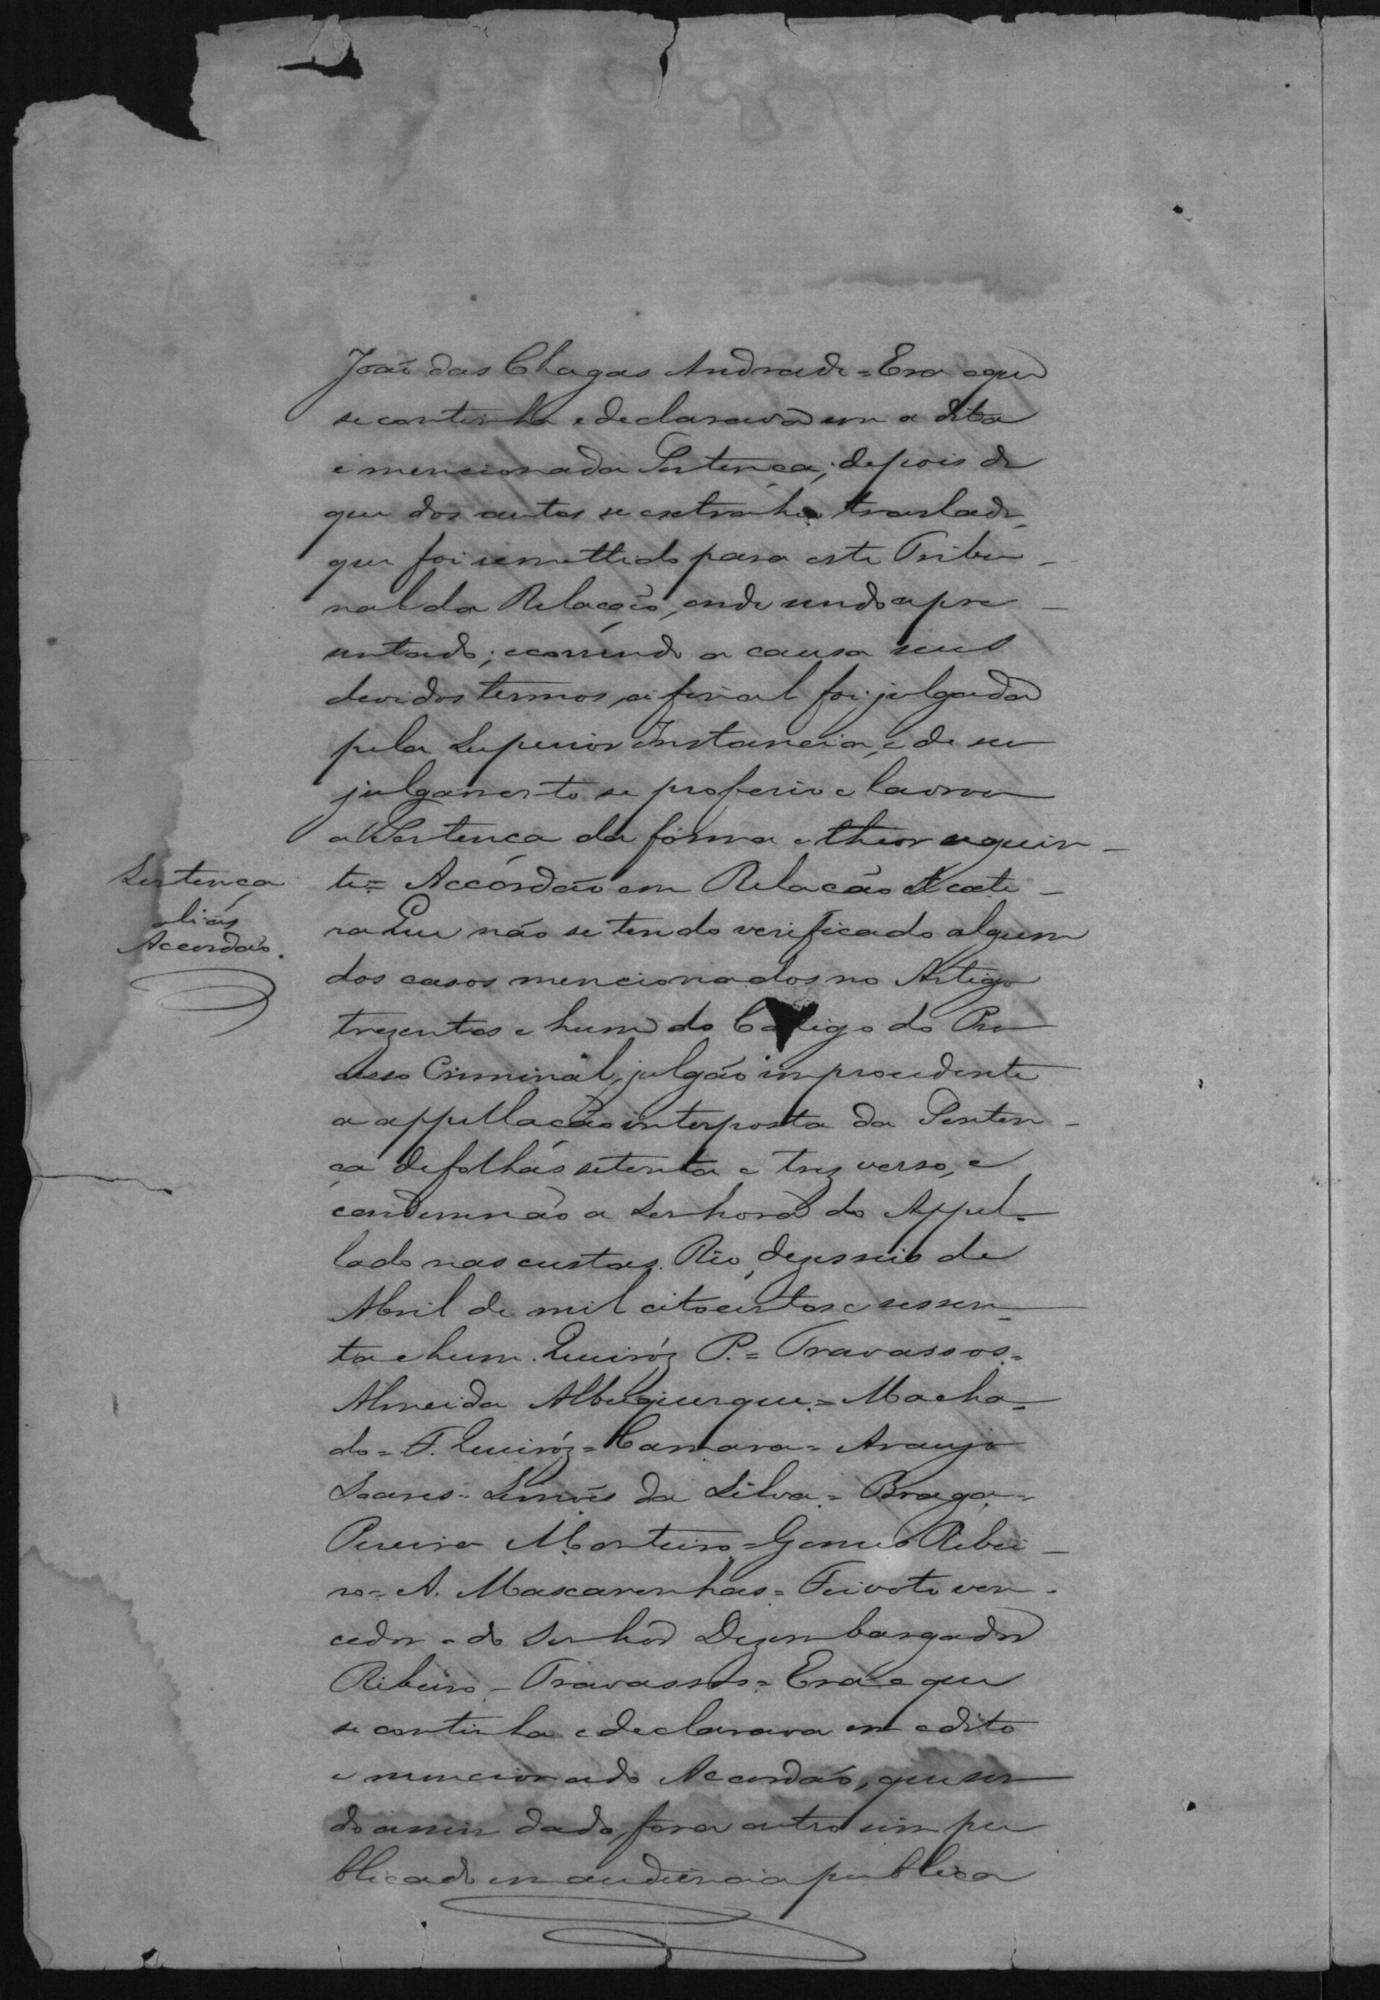 João das Chagas Andrade = Era o que
se continha e declarava em a dita
e mencionada Sentença; depois de
que dos autos se extrahio traslado,
que foi remettido para este Tribu-
nal da Relação, onde sendo apre-
sentado; e correndo a causa seus
devidos termos, a final foi julgada
pela Superior Instancia, e de seu
julgamento se proferio e lavrou
a Sentença da fórma e theor seguin-
te = Accórdão em Relação et cete-
Sentença
aliás
Accordão.
ra Que não se tendo verificado algum
dos casos mencionados no Artigo
trezentos e hum do Codigo do Pro
cesso Criminal, julgão improcedente
a appellação interposta da Senten-
ça de folhas setenta e trez verso, e
condemnão a Senhora do Appel-
lado nas custas. Rio, dezesseis de
Abril de mil oitocentos e sessen-
ta e hum. Queiróz P. = Travassos =
Almeida Albuquerque = Macha-
do = F. Queiróz = Camara = Araujo
Soares = Simões da Silva = Braga =
Pereira Monteiro = Gomes Ribei-
ro = A. Mascarenhas = Foi voto ven-
cedor o do Senhor Dezembargador
Ribeiro - Travassos = Era o que
se continha e declarava em o dito
e mencionado Accordão, que sen
do assim dado, fora outro sim pu
blicado em audiencia publica